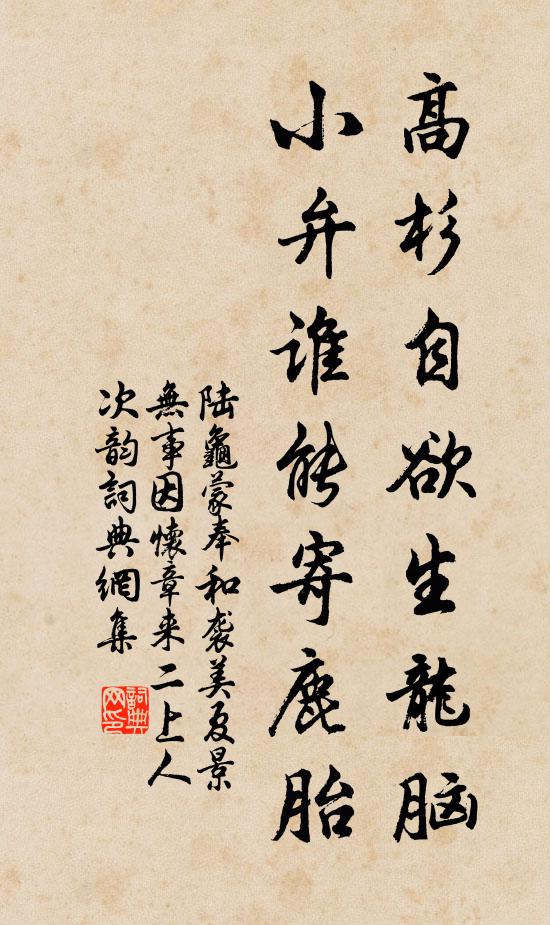 高杉自欲生龍脑
小弁誰能寄鹿胎
陆龜蒙奉和袭美夏景
無事因懷章来二上人
次韵詞典網集
詞典网印